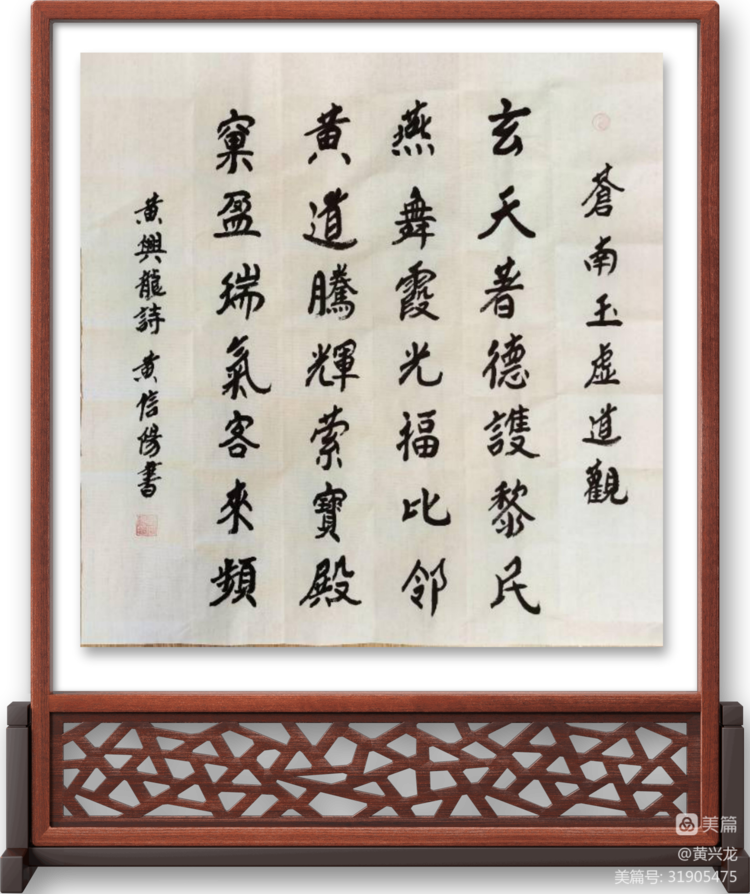 蒼南玉虚道觀
玄天著德護黎民
燕舞霞光福比邻
黄道騰輝萦寶殿
窠盈瑞氣客來頻
黄興龍詩 黄信陽書
美篇
@黄兴龙
美篇号: 31905475